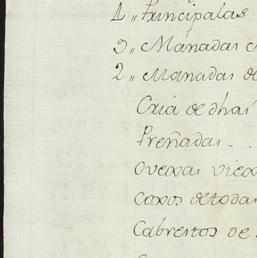 1,, Principalas
2,, Manadas
2,, Manadas de
Cria de dhas
Preñadas . .
Ovexas viex
de todas
Cabrestos de